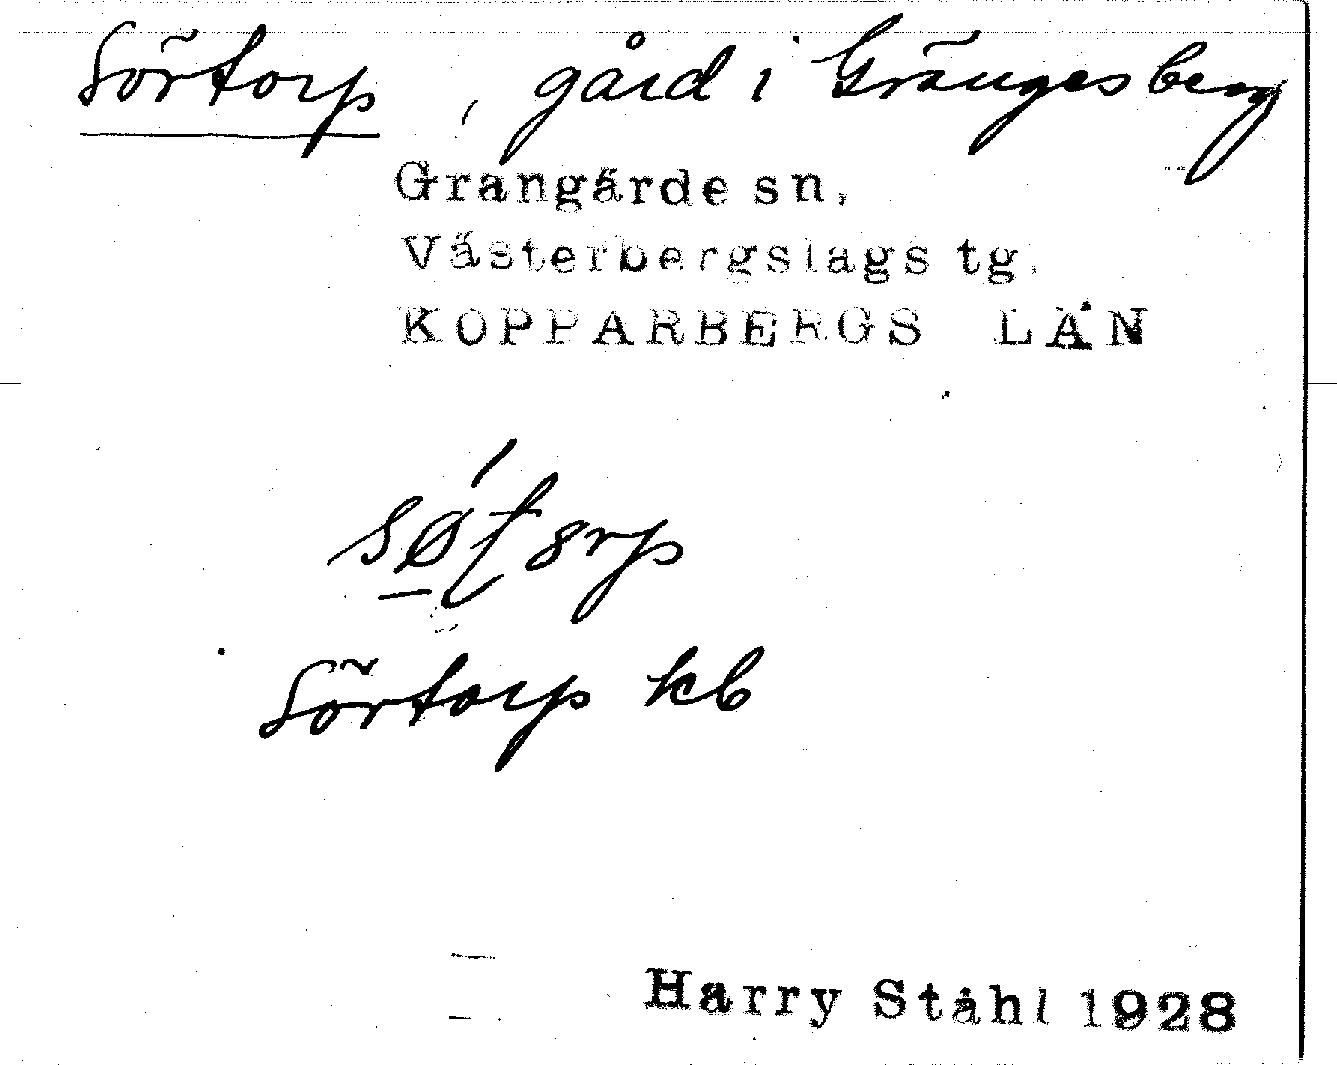 Sörtorp, gård i Grängesberg
Grangärde sn,
Västerbergslags tg.
KOPPARBERGS LÄN
Sörtorp kb
Harry Ståhl 1928